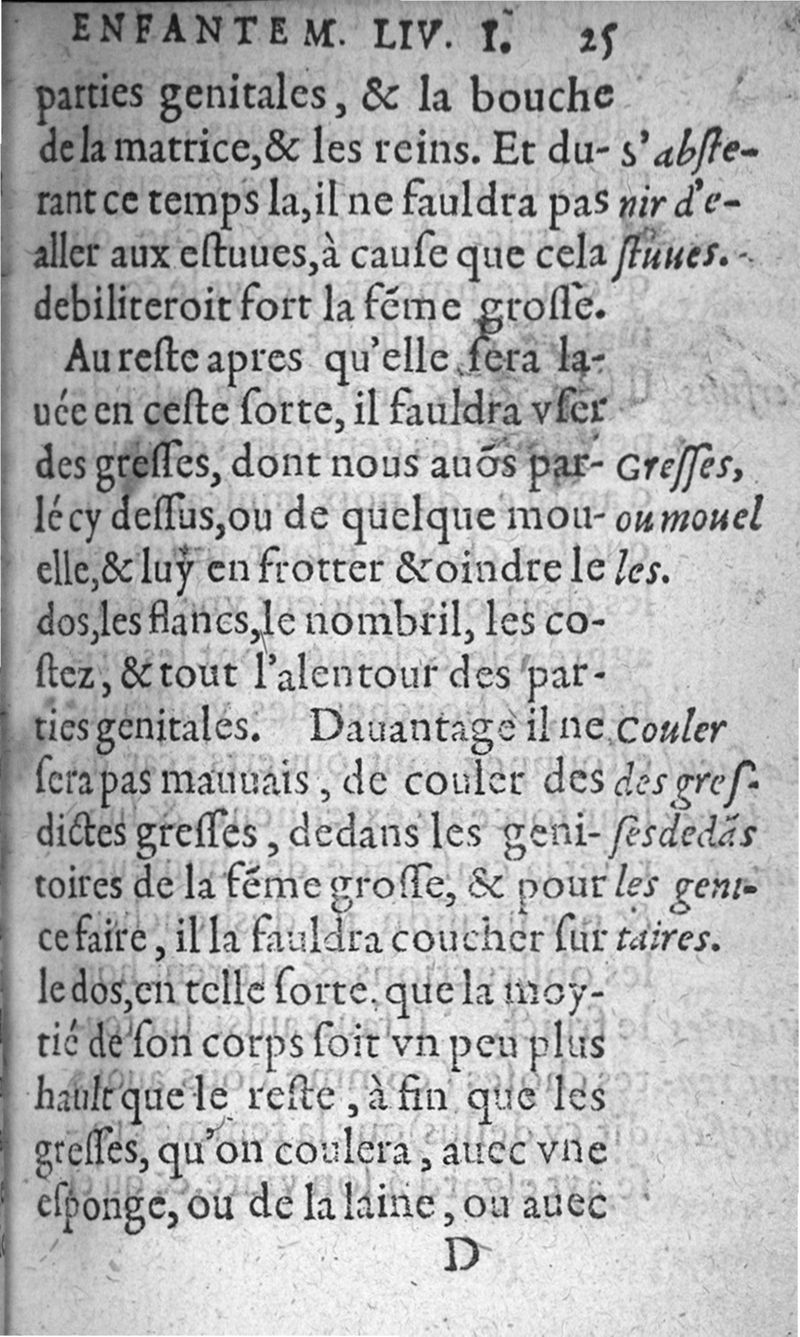 ENFANTEM. LIV. I. 25
parties genitales, & la bouche
de la matrice, & les reins. Et du- s'abſte-
rant ce temps la, il ne fauldra pas nir d'e-
aller aux eſtuues, à cauſe que cela ſtuues.
debiliteroit fort la féme groſſe.
Au reſte apres qu'elle ſera la-
uée en ceſte ſorte, il fauldra vſer
des greſſes, dont nous auõs par- Greſſes,
lé cy deſſus, ou de quelque mou- ou mouel
elle, & luy en frotter & oindre le les.
dos, les flancs, le nombril, les co-
ſtez, & tout l'alentour des par-
ties genitales. Dauantage il ne Couler
ſera pas mauuais, de couler des des greſ-
dictes greſſes, dedans les geni- ſes dedãs
toires de la féme groſſe, & pour les geni-
ce faire, il la fauldra coucher ſur taires.
le dos, en telle ſorte, que la moy-
tié de ſon corps ſoit vn peu plus
hault que le reſte, à fin que les
greſſes, qu'on coulera, auec vne
eſponge, ou de la laine, ou auec
D